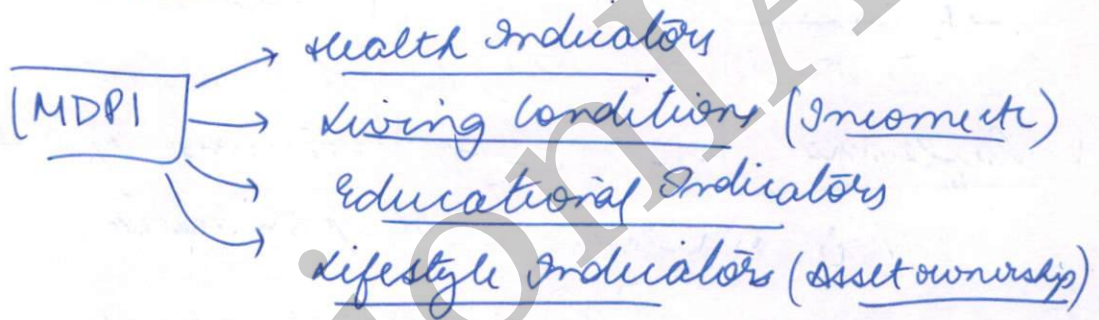 Health Indicators
MDPI
Living Conditions (Income etc)
Educational Indicators
Lifestyle Indicators (Asset ownership)